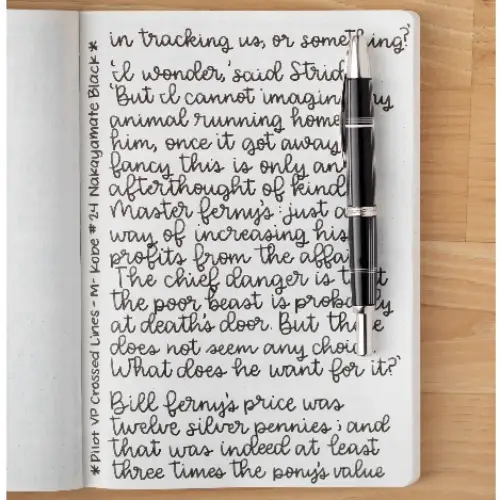 *Pilot VP Crossed Lines - M - Kobe #24 Nakayamate Black*
in tracking us, or something?'
'I wonder,' said
'But I cannot
animal running home
him, once it got away
fancy this is only an
afterthought of
Master ferny's: just a
way of increasing his
profits from the
The chief danger is that
the poor beast is probably
at death's door. But there
does not seem any
What does he want for it?'
Bill ferny's price was
twelve silver pennies; and
that was indeed at least
three times the pony's value